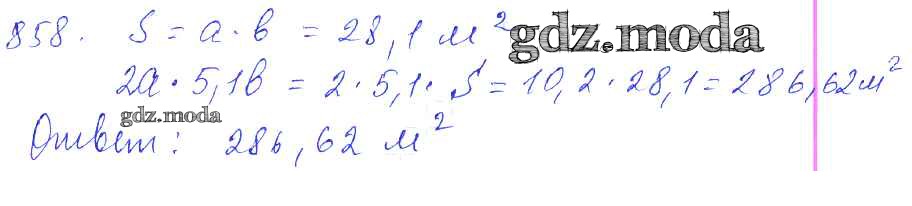 858. S = a · b = 28,1 м²
gdz.moda
2a · 5,1b = 2 · 5,1 · S = 10,2 · 28,1 = 286,62 м²
gdz.moda
Ответ: 286,62 м²